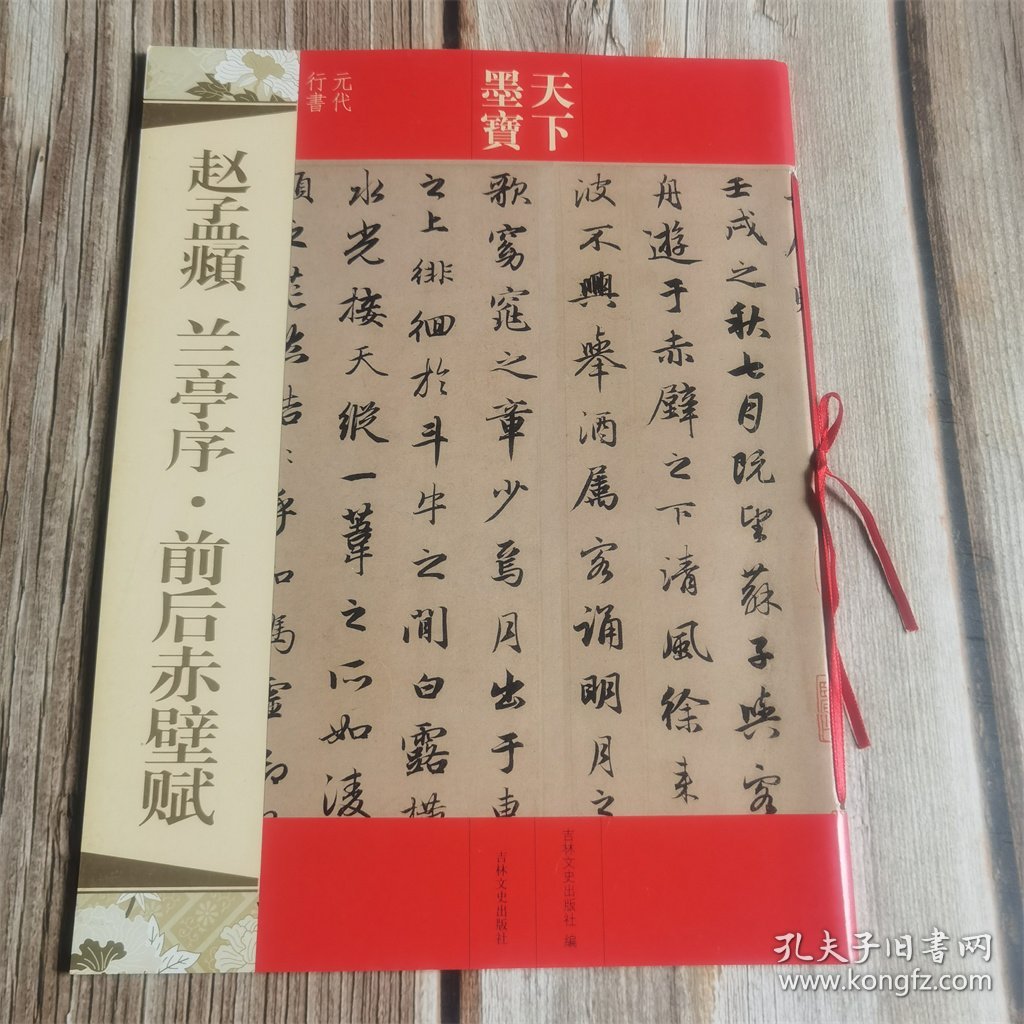 天下
墨寶
元代
行書
赵孟頫 兰亭序·前后赤壁赋
壬戌之秋七月既望蘇子與客
舟遊于赤壁之下清風徐来
波不興舉酒属客誦明月之
歌窈窕之章少焉月出于東
之上徘徊於斗牛之間白露横
水光接天縱一葦之所如凌
吉林文史出版社 编
吉林文史出版社
孔夫子旧书网
www.kongfz.com